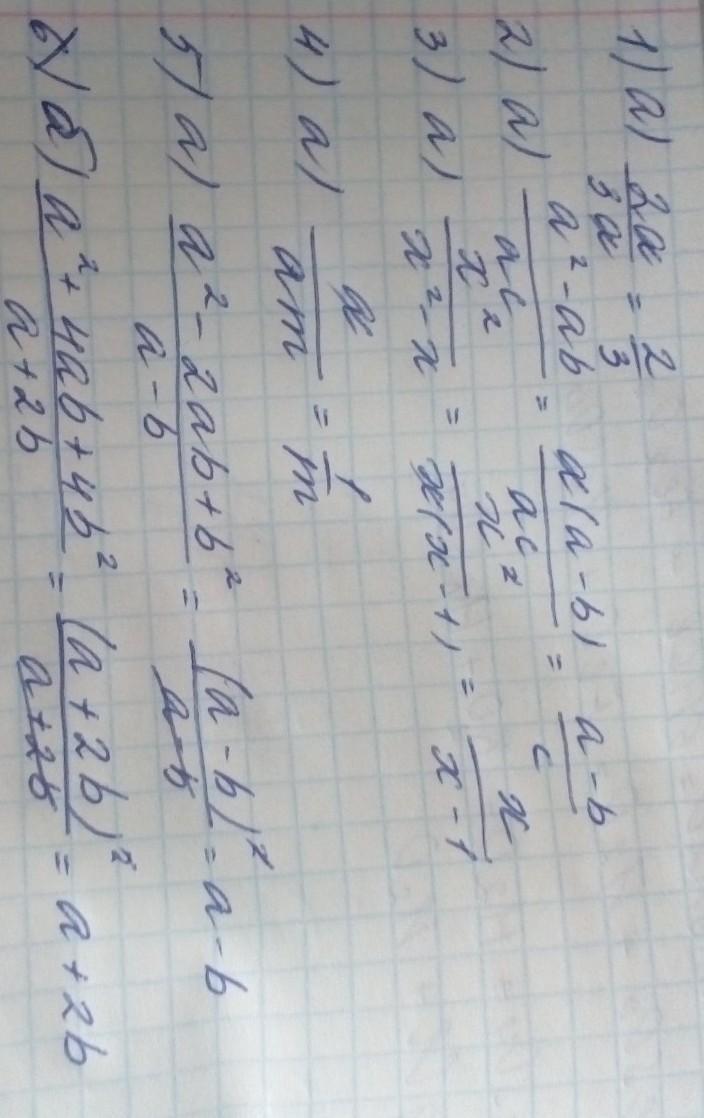 1) а) 2a/3a = 2/3
2) а) (a² - ab)/(ac) = a(a - b)/(ac) = (a - b)/c
3) а) x²/(x² - x) = x²/(x(x - 1)) = x/(x - 1)
4) а) a/(am) = 1/m
5) а) (a² - 2ab + b²)/(a - b) = (a - b)²/(a - b) = a - b
6) б) (a² + 4ab + 4b²)/(a + 2b) = (a + 2b)²/(a + 2b) = a + 2b